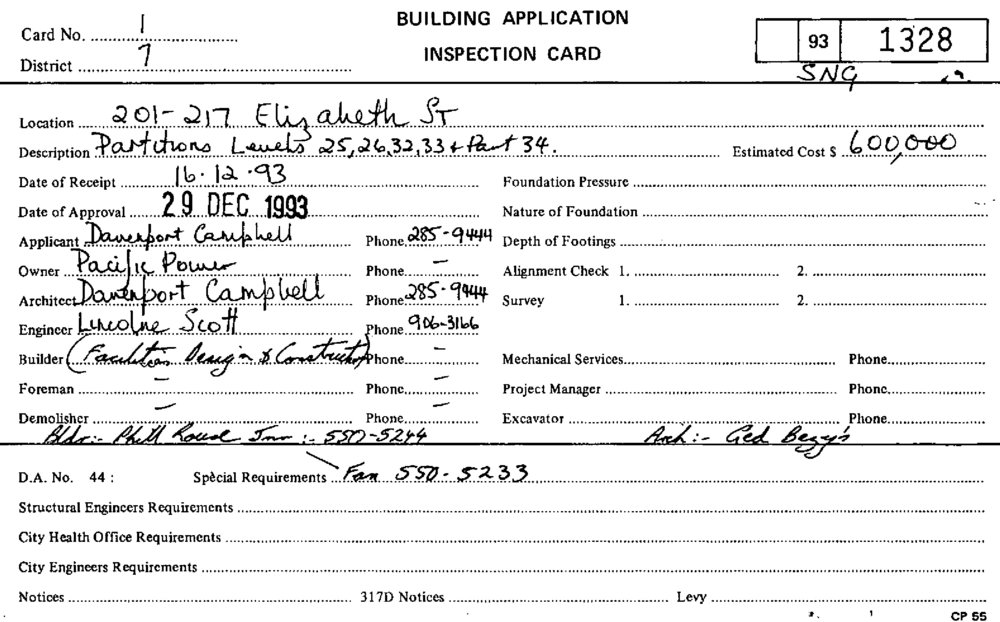 Card No. 1
BUILDING APPLICATION
93 1328
District 7
INSPECTION CARD
SNG
Location 201-217 Elizabeth St
Description Partitions Levels 25,26,32,33 & Part 34.
Estimated Cost $ 600,000
Date of Receipt 16.12.93
Foundation Pressure
Date of Approval 29 DEC 1993
Nature of Foundation
Applicant Davenport Campbell Phone 285-9444
Depth of Footings
Owner Pacific Power Phone —
Alignment Check 1. 2.
Architect Davenport Campbell Phone 285-9444
Survey 1. 2.
Engineer Lincolne Scott Phone 906-3166
Builder (Facilities Design & Construct) Phone —
Mechanical Services Phone
Foreman — Phone —
Project Manager Phone
Demolisher — Phone —
Excavator Phone
Bldr:- Phill House :- 550-5244
Arch:- Ged
D.A. No. 44 : Special Requirements Fax 550-5233
Structural Engineers Requirements
City Health Office Requirements
City Engineers Requirements
Notices 317D Notices Levy
CP 55